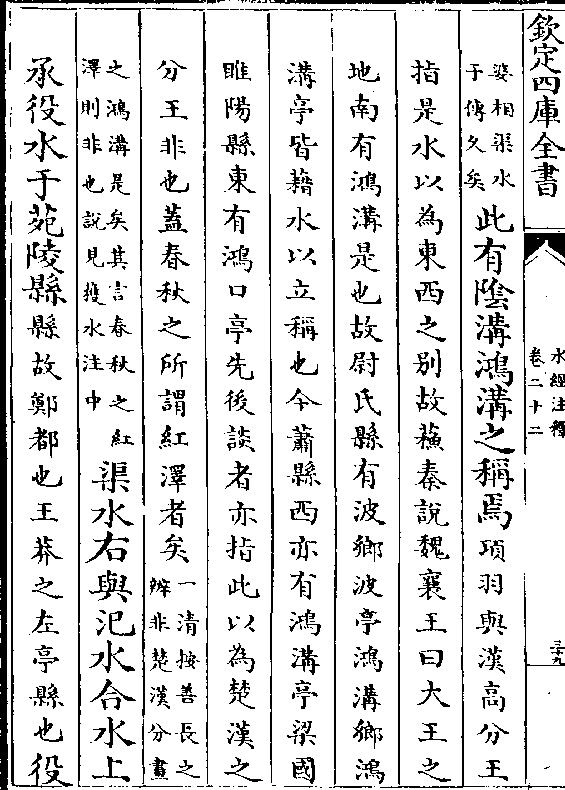 欽定四庫全書
水經注釋
卷二十二
三十九
婆相渠水
于傳久矣
此有陰溝鴻溝之稱焉項羽與漢高分王
指是水以為東西之別故蘓秦說魏襄王曰大王之
地南有鴻溝是也故尉氏縣有波鄉波亭鴻溝鄉鴻
溝亭皆藉水以立稱也今蕭縣西亦有鴻溝亭梁國
睢陽縣東有鴻口亭先後談者亦指此以為楚漢之
分王非也蓋春秋之所謂紅澤者矣
一清按善長之
辨非楚漢分畫
之鴻溝是矣其言春秋之紅
澤則非也說見獲水注中
渠水右與汜水合水上
承役水于菀陵縣縣故鄭都也王莽之左亭縣也役